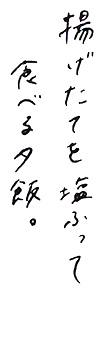 揚げたてを塩ふって
食べる夕飯。